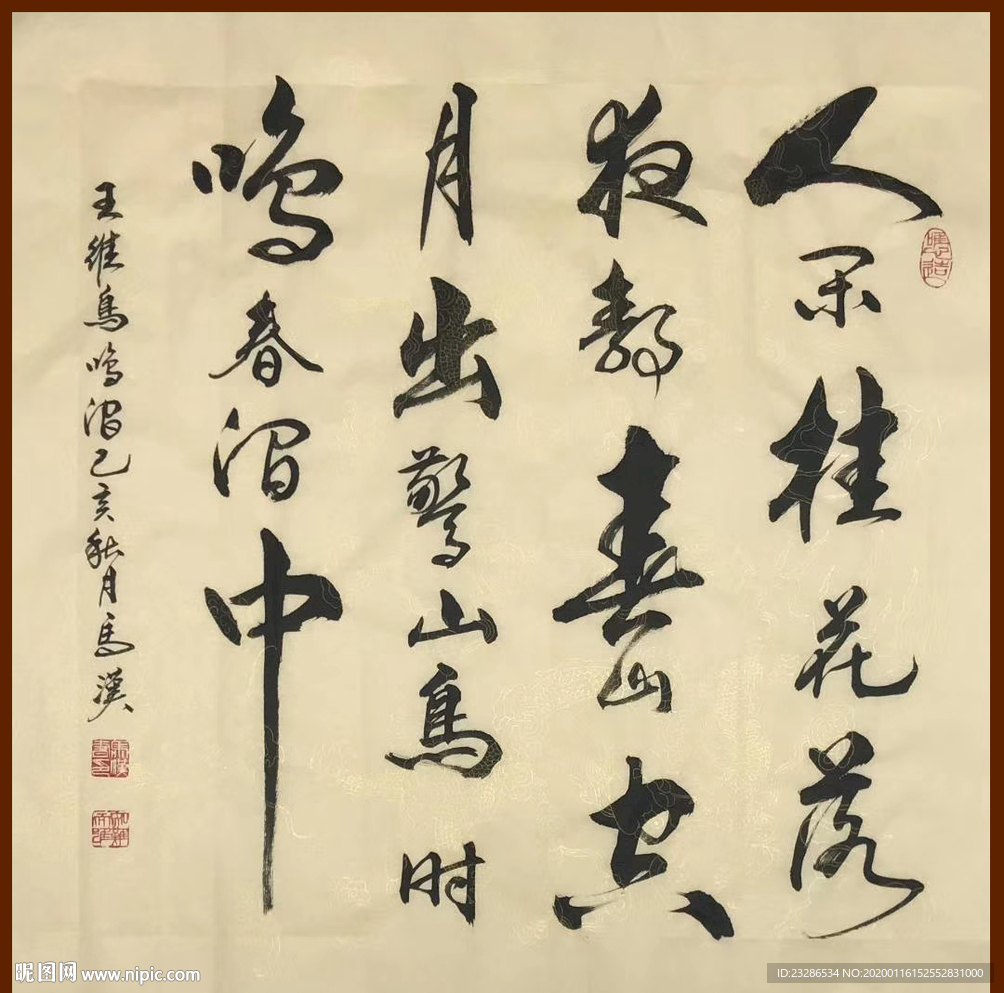 人閑桂花落
夜静春山空
月出驚山鳥时
鳴春澗中
王維鳥鳴澗己亥秋月馬漢
昵图网 www.nipic.com
ID:23286534 NO:20200116152552831000